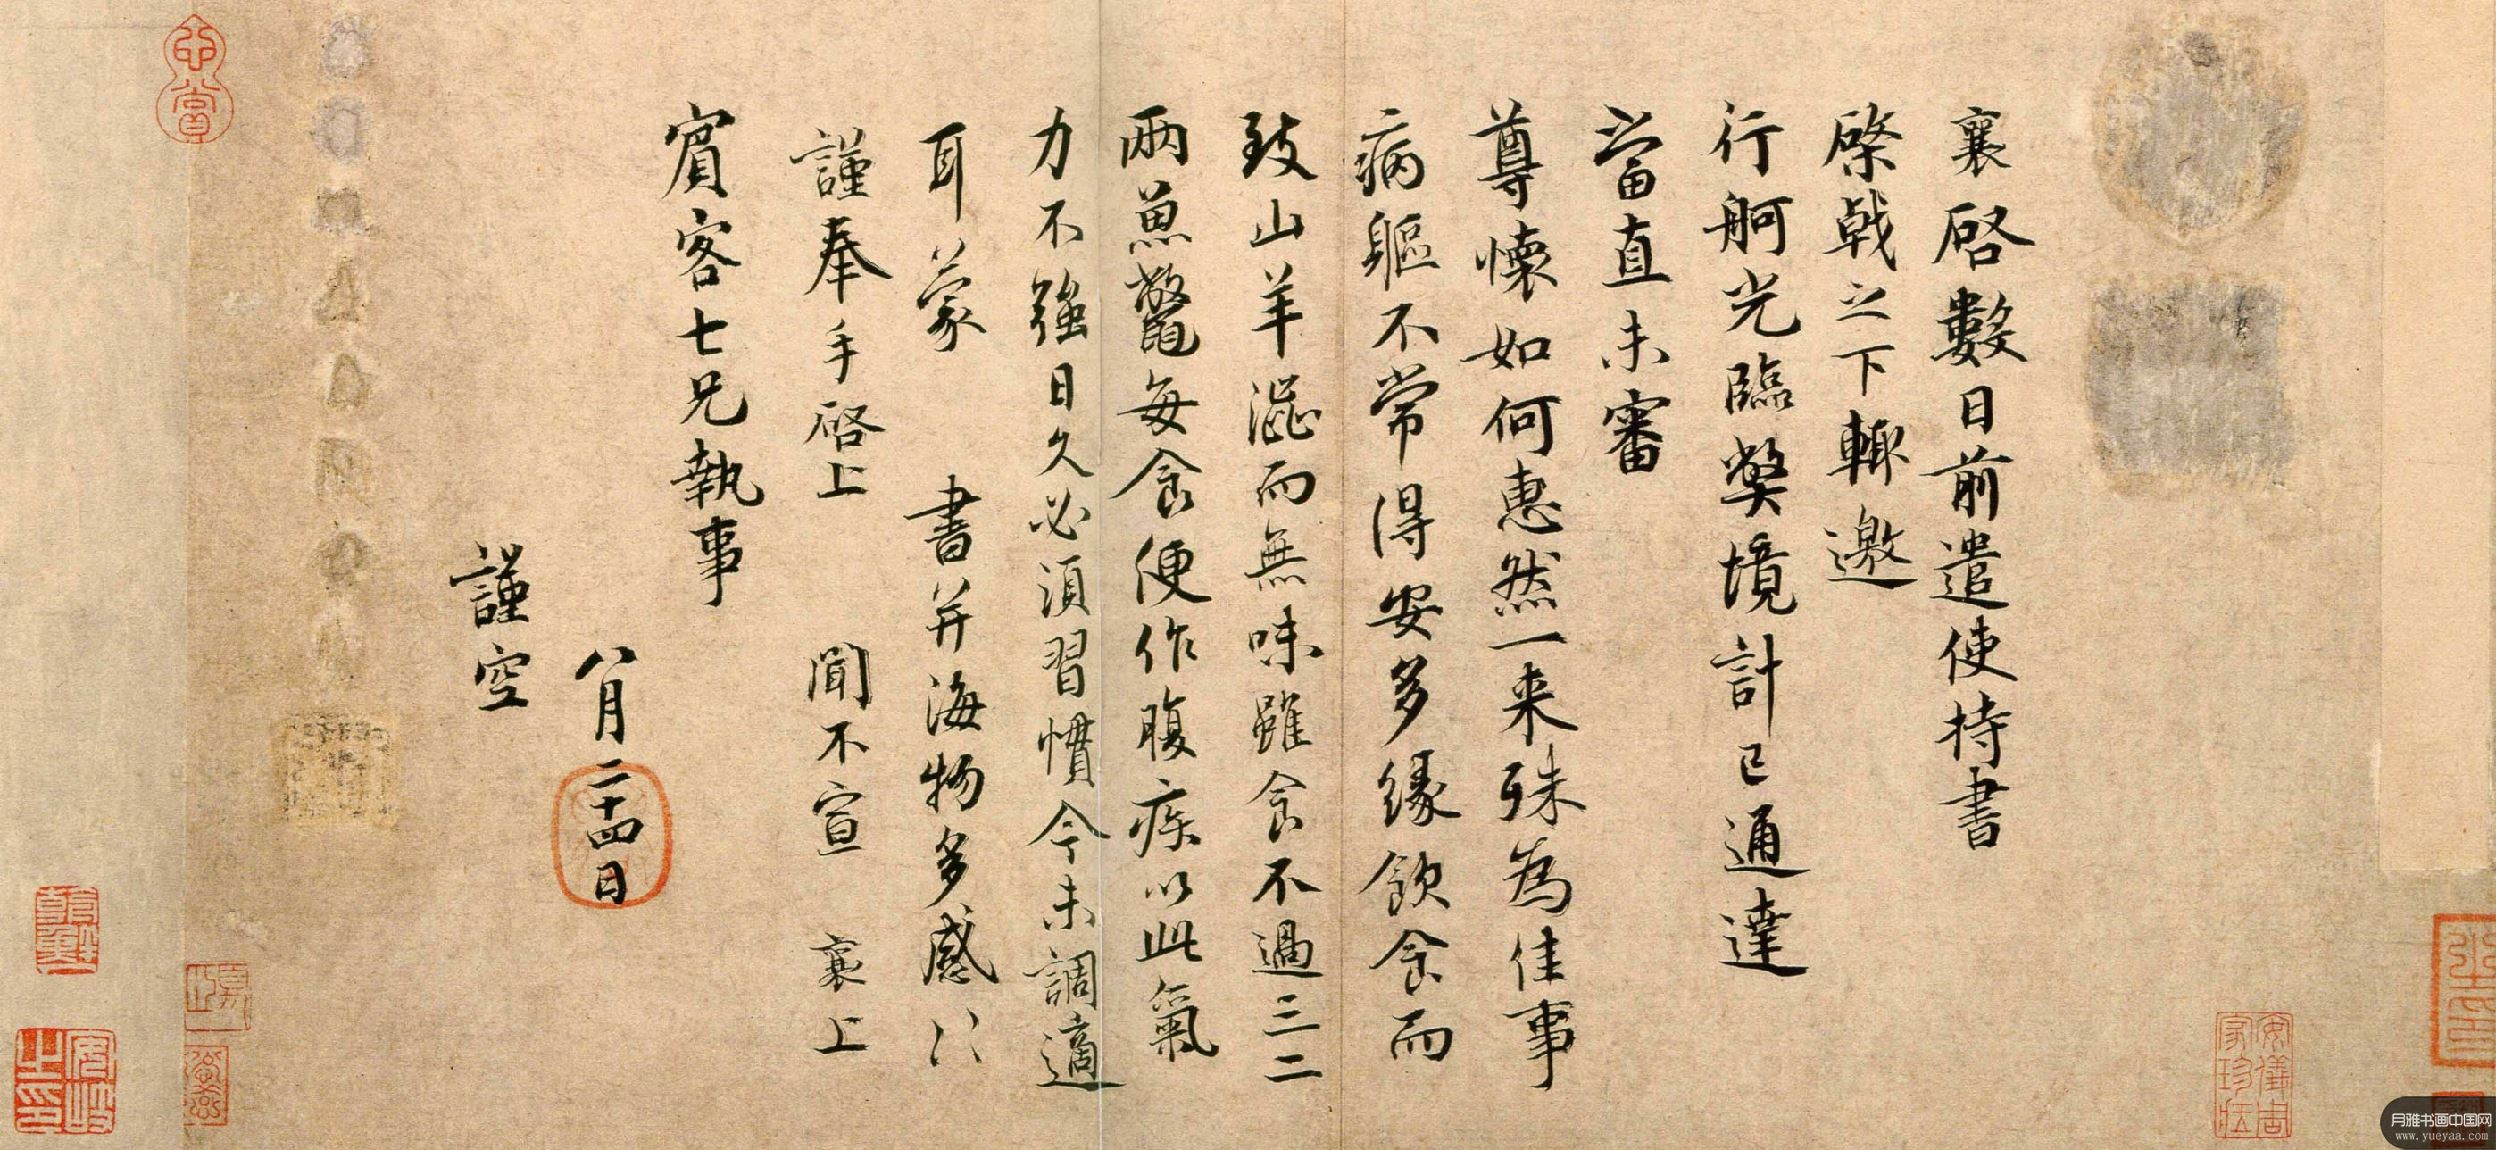 襄啓數日前遣使持書
棨戟之下輙邀
行舸光臨獘境計已通達
當直未審
尊懷如何惠然一来殊為佳事
病軀不常得安多緣飲食而
致山羊澁而無味雖食不過三二
兩魚鼈每食便作腹疾以此氣
力不強日久必湏習慣今未調適
耳蒙 書并海物多感〻
謹奉手啓上 聞不宣 襄上
賔客七兄執事
八月二十四日
謹空
安儀周家珍藏
月雅书画中国网
www.yueyaa.com